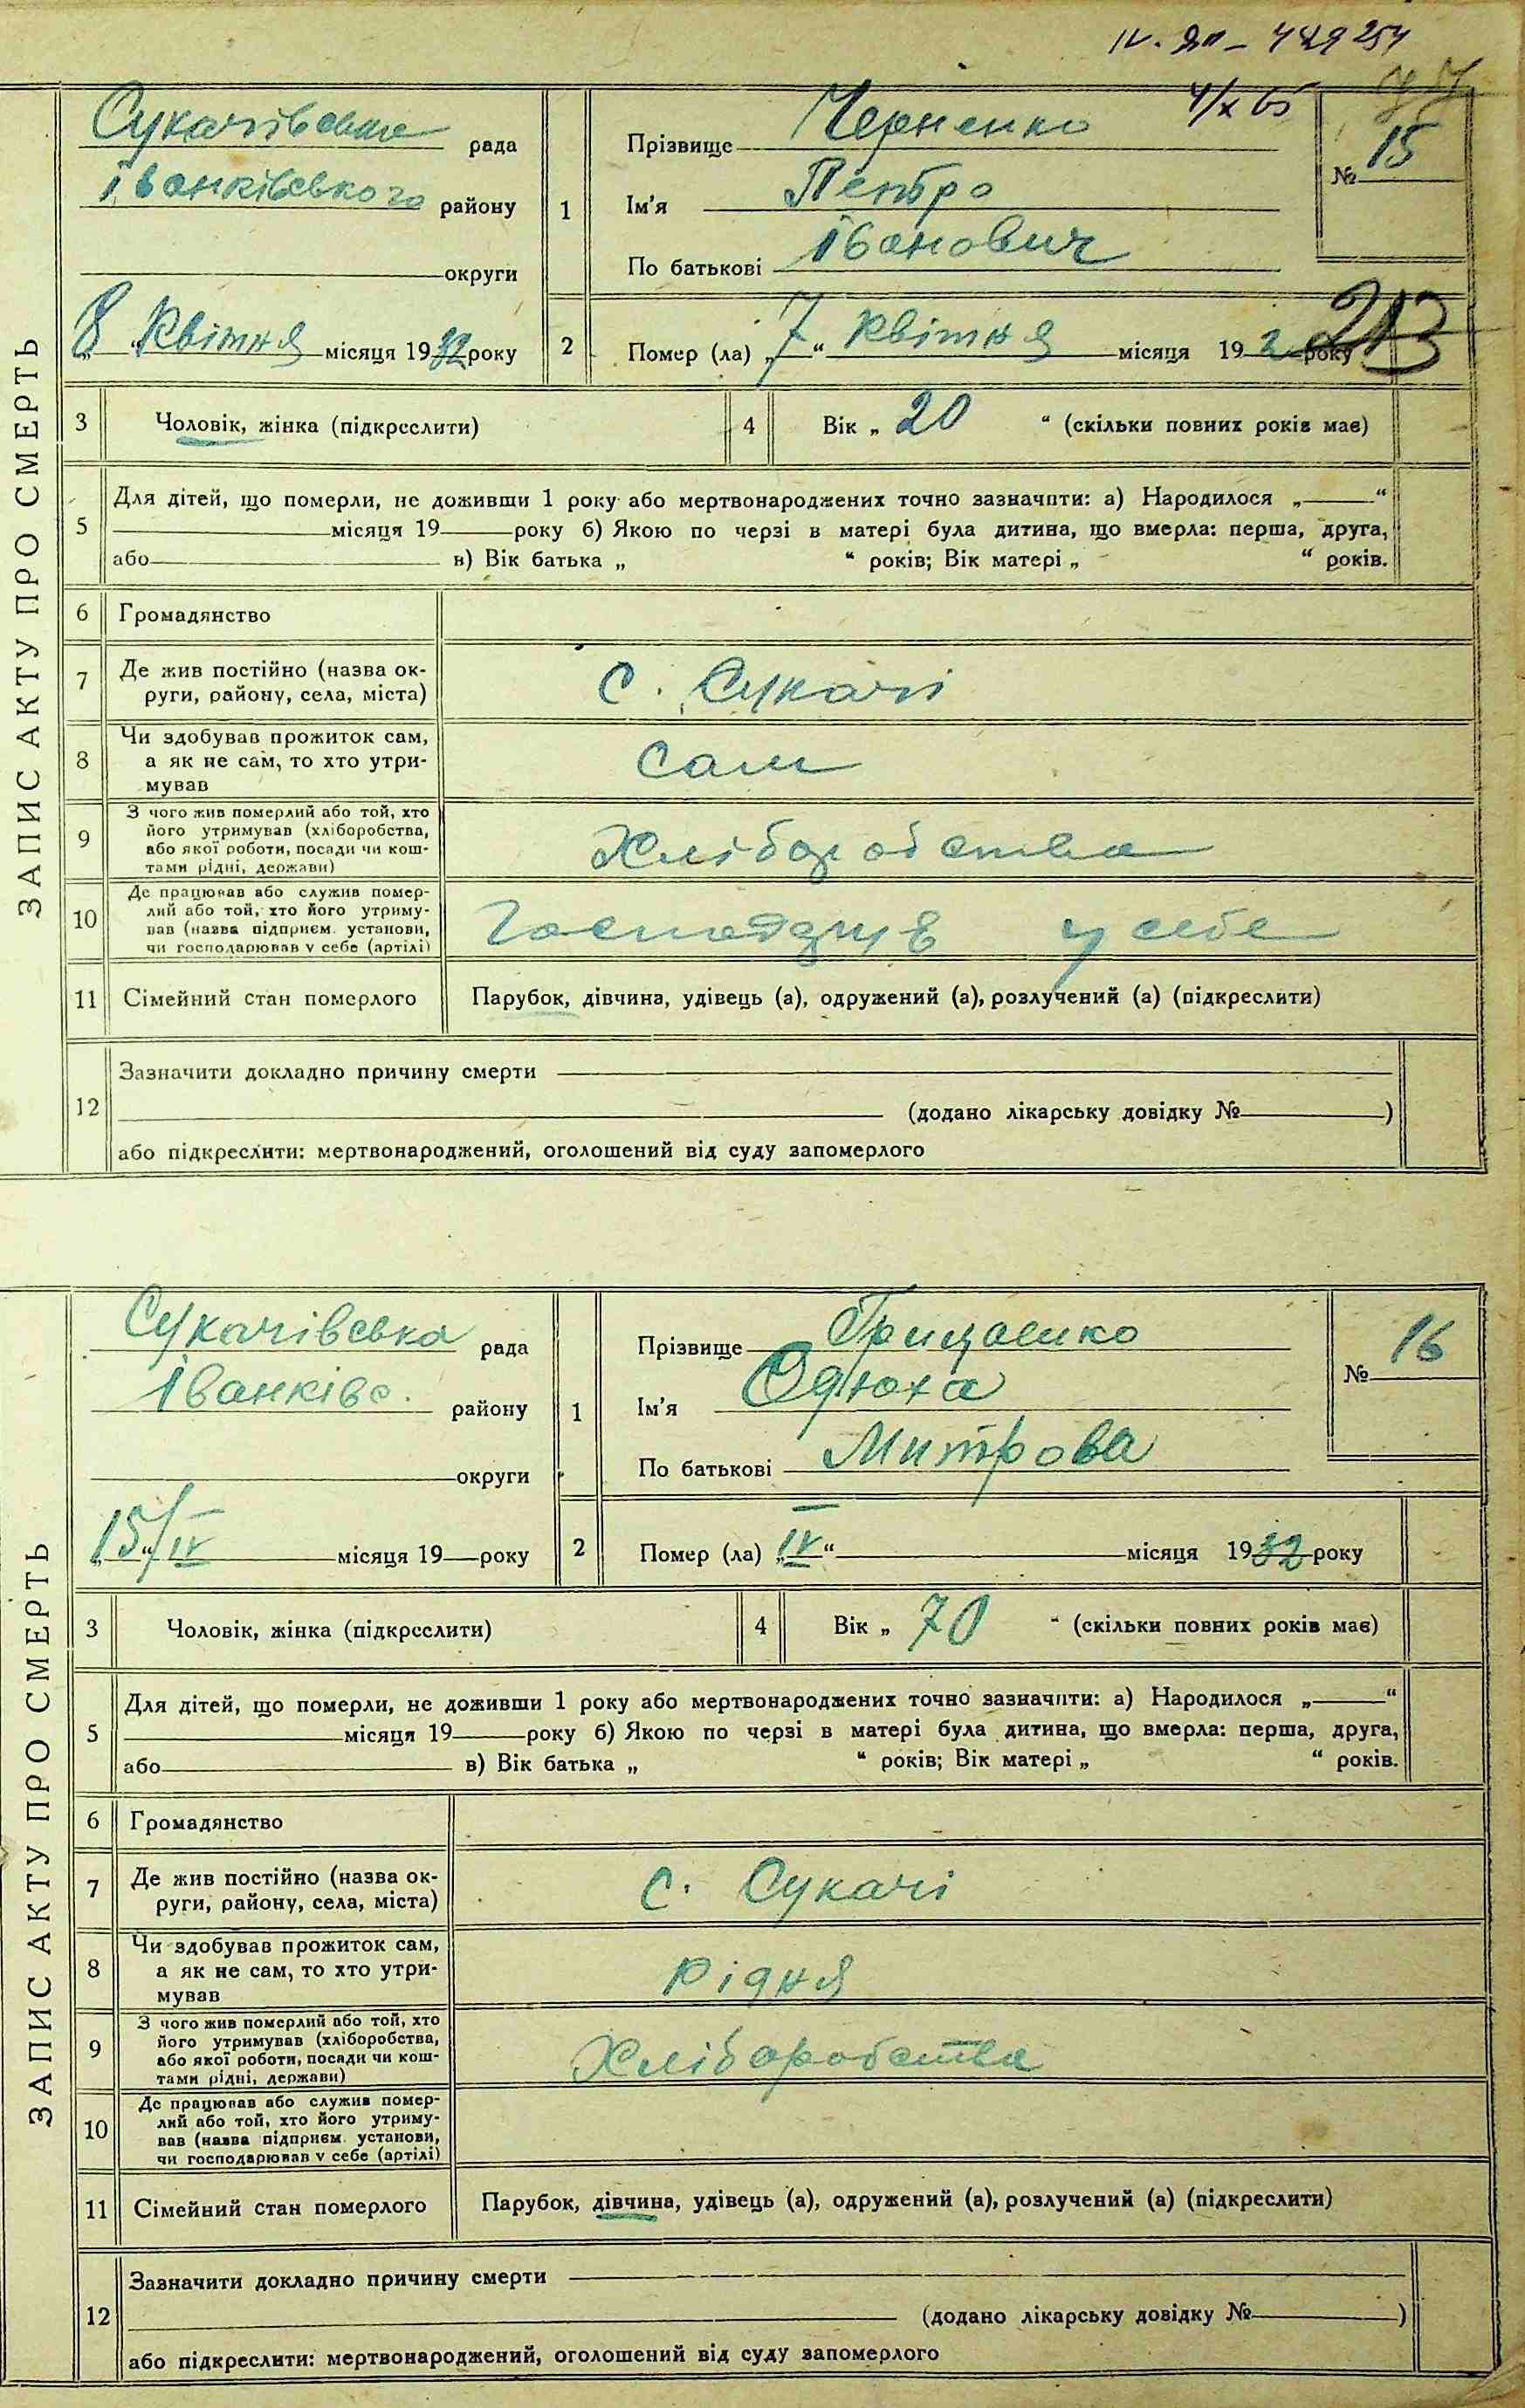 IV. ЯП – 429254
4/X 65
ЗАПИС АКТУ ПРО СМЕРТЬ
Сукачівська рада
Іванківського району
округи
„8“ Квітня місяця 1932 року
1
Прізвище Черненко
Ім'я Пентро
По батькові Іванович
№ 15
2 Помер (ла) „7“ Квітня місяця 19 2 року
213
3 Чоловік, жінка (підкреслити)
4 Вік „ 20 “ (скільки повних років має)
5 Для дітей, що померли, не доживши 1 року або мертвонароджених точно зазначити: а) Народилося „ “
місяця 19 року б) Якою по черзі в матері була дитина, що вмерла: перша, друга,
або в) Вік батька „ “ років; Вік матері „ “ років.
6 Громадянство
7 Де жив постійно (назва ок-
руги, району, села, міста)
с. Сукачі
8 Чи здобував прожиток сам,
а як не сам, то хто утри-
мував
Сам
9 З чого жив померлий або той, хто
його утримував (хліборобства,
або якої роботи, посади чи кош-
тами рідні, держави)
Хліборобства
10 Де працював або служив помер-
лий або той, хто його утриму-
вав (назва підприєм. установи,
чи господарював у себе (артілі)
у себе
11 Сімейний стан померлого
Парубок, дівчина, удівець (а), одружений (а), розлучений (а) (підкреслити)
12 Зазначити докладно причину смерти
(додано лікарську довідку № )
або підкреслити: мертвонароджений, оголошений від суду запомерлого
ЗАПИС АКТУ ПРО СМЕРТЬ
Сукачівська рада
Іванківс. району
округи
„15“/IV місяця 19 року
1
Прізвище Грищенко
Ім'я Одюха
По батькові Митрова
№ 16
2 Помер (ла) „IV“ місяця 1932 року
3 Чоловік, жінка (підкреслити)
4 Вік „ 70 “ (скільки повних років має)
5 Для дітей, що померли, не доживши 1 року або мертвонароджених точно зазначити: а) Народилося „ “
місяця 19 року б) Якою по черзі в матері була дитина, що вмерла: перша, друга,
або в) Вік батька „ “ років; Вік матері „ “ років.
6 Громадянство
7 Де жив постійно (назва ок-
руги, району, села, міста)
с. Сукачі
8 Чи здобував прожиток сам,
а як не сам, то хто утри-
мував
рідня
9 З чого жив померлий або той, хто
його утримував (хліборобства,
або якої роботи, посади чи кош-
тами рідні, держави)
Хліборобства
10 Де працював або служив помер-
лий або той, хто його утриму-
вав (назва підприєм. установи,
чи господарював у себе (артілі)
11 Сімейний стан померлого
Парубок, дівчина, удівець (а), одружений (а), розлучений (а) (підкреслити)
12 Зазначити докладно причину смерти
(додано лікарську довідку № )
або підкреслити: мертвонароджений, оголошений від суду запомерлого